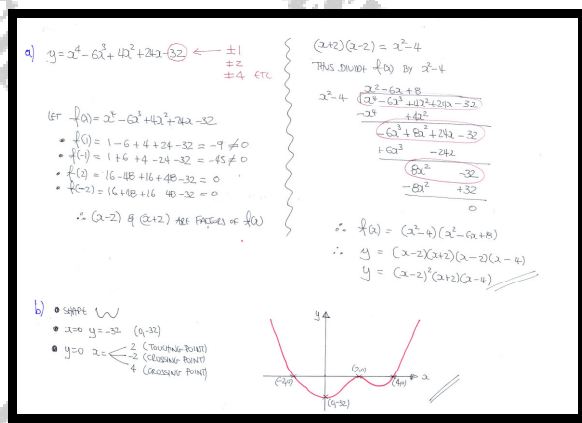 a) y = x⁴ - 6x³ + 4x² + 24x - 32 ← ±1
±2
±4 ETC
LET f(x) = x⁴ - 6x³ + 4x² + 24x - 32
• f(1) = 1 - 6 + 4 + 24 - 32 = -9 ≠ 0
• f(-1) = 1 + 6 + 4 - 24 - 32 = -45 ≠ 0
• f(2) = 16 - 48 + 16 + 48 - 32 = 0
• f(-2) = 16 + 48 + 16 48 - 32 = 0
∴ (x-2) & (x+2) ARE FACTORS OF f(x)
(x+2)(x-2) = x² - 4
THUS DIVIDE f(x) BY x² - 4
x² - 6x + 8
x² - 4 | x⁴ - 6x³ + 4x² + 24x - 32
-x⁴ + 4x²
-6x³ + 8x² + 24x - 32
+6x³ - 24x
8x² - 32
-8x² + 32
0
∴ f(x) = (x² - 4)(x² - 6x + 8)
∴ y = (x-2)(x+2)(x-2)(x-4)
y = (x-2)²(x+2)(x-4)
b) • SHAPE
• x=0 y=-32 (0,-32)
• y=0 x= 2 (TOUCHING POINT)
-2 (CROSSING POINT)
4 (CROSSING POINT)
y
(-2,0) (2,0) (4,0) x
(0,-32)